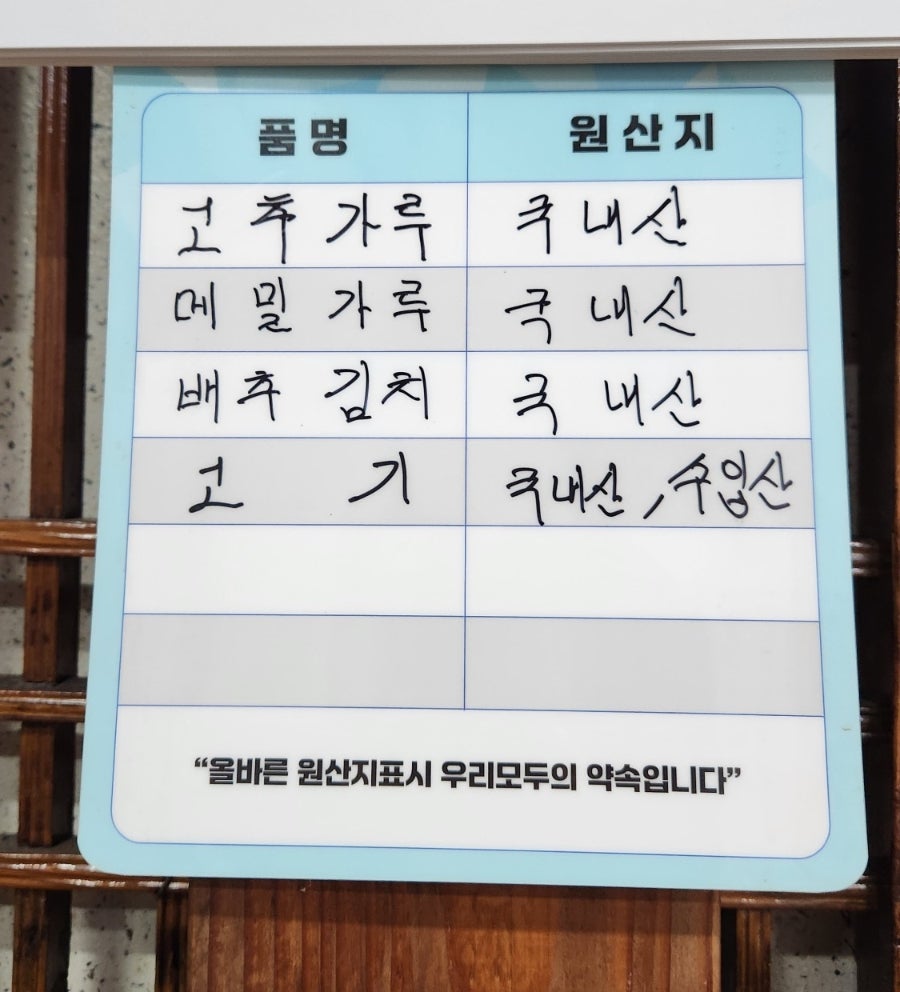 품명 원산지
고추가루 국내산
메밀가루 국내산
배추김치 국내산
고기 국내산, 수입산
“올바른 원산지표시 우리모두의 약속입니다”